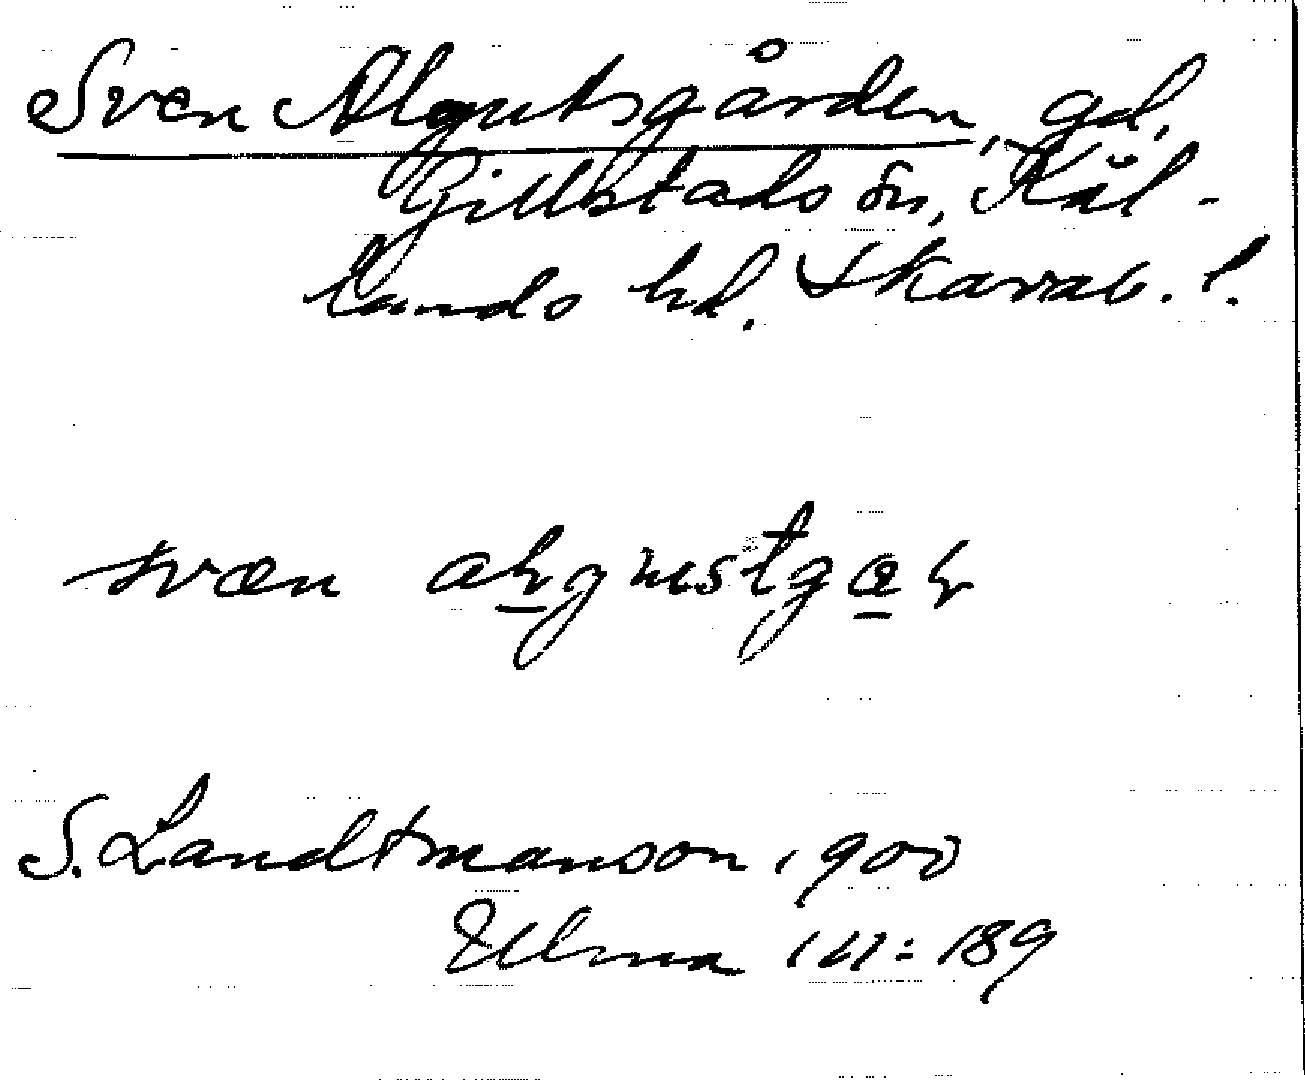 Sven Algutsgården, gd,
Gillstads sn, Kål-
lands hd. Skarab. l.
svæn
S. Landtmanson 1900
Ulma 111:189